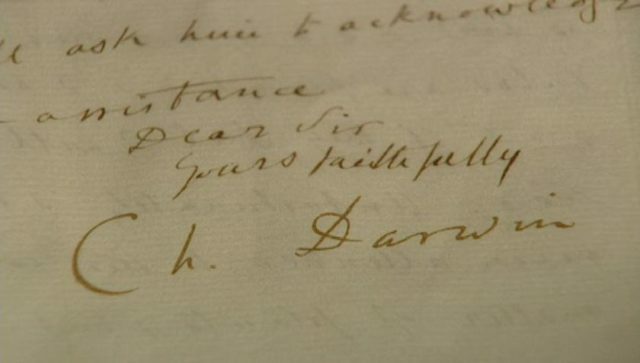 ask him to acknowledge
assistance
Dear Sir
yours faithfully
Ch. Darwin